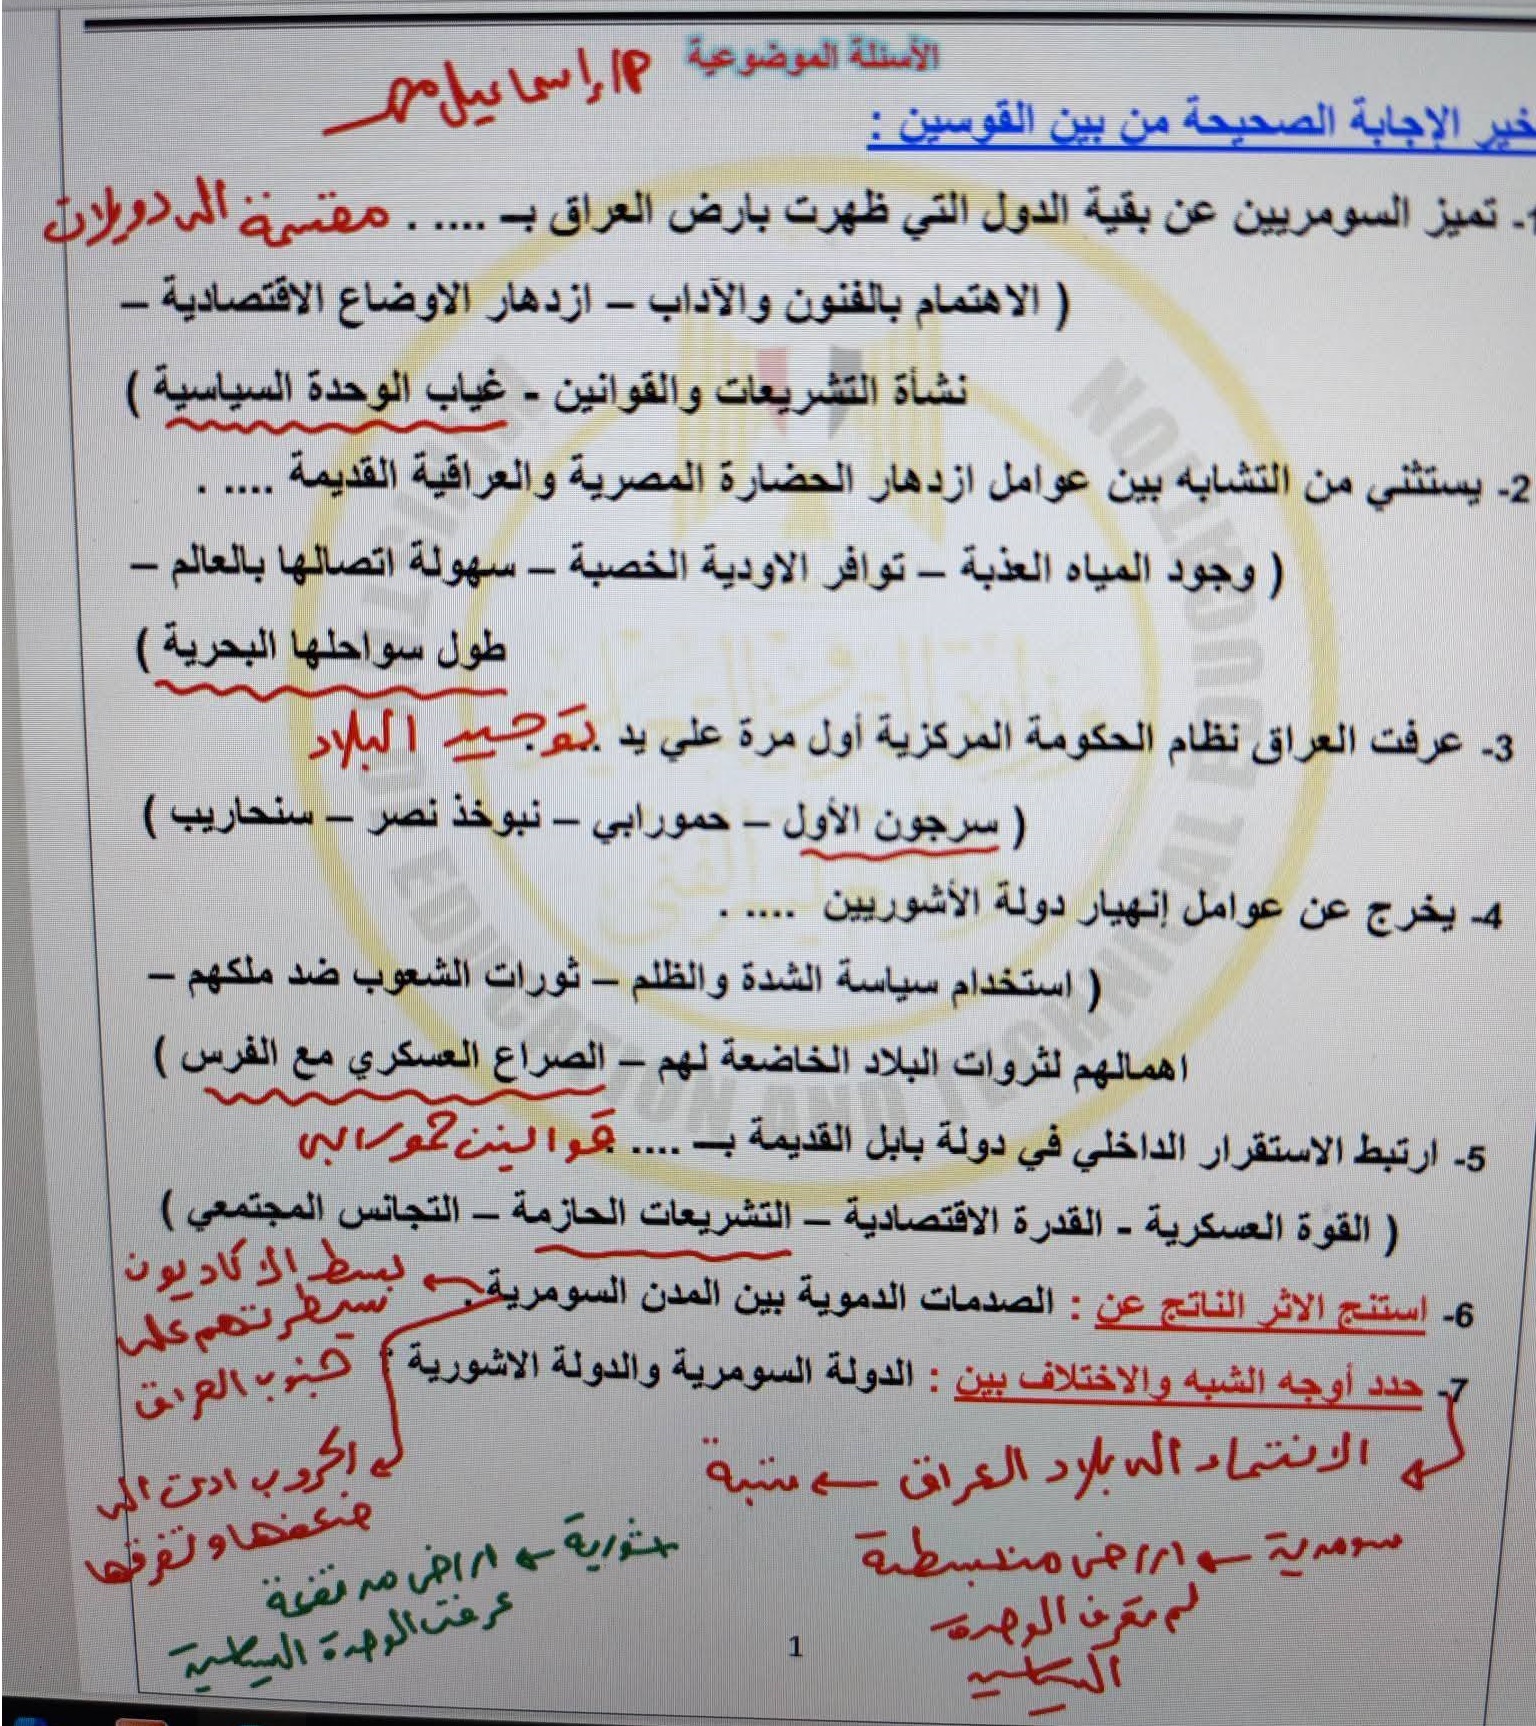 الأسئلة الموضوعية
أ/ إسماعيل مهر
خير الإجابة الصحيحة من بين القوسين :
- تميز السومريين عن بقية الدول التي ظهرت بارض العراق بـ .... . مقسمة الى دويلات
( الاهتمام بالفنون والآداب – ازدهار الاوضاع الاقتصادية –
نشأة التشريعات والقوانين - غياب الوحدة السياسية )
2- يستثني من التشابه بين عوامل ازدهار الحضارة المصرية والعراقية القديمة .... .
( وجود المياه العذبة – توافر الاودية الخصبة – سهولة اتصالها بالعالم –
طول سواحلها البحرية )
3- عرفت العراق نظام الحكومة المركزية أول مرة علي يد .. توحيد البلاد
( سرجون الأول – حمورابي – نبوخذ نصر – سنحاريب )
4- يخرج عن عوامل إنهيار دولة الأشوريين .... .
( استخدام سياسة الشدة والظلم – ثورات الشعوب ضد ملكهم –
اهمالهم لثروات البلاد الخاضعة لهم – الصراع العسكري مع الفرس )
5- ارتبط الاستقرار الداخلي في دولة بابل القديمة بـ .... . قوانين حمورابى
( القوة العسكرية - القدرة الاقتصادية – التشريعات الحازمة – التجانس المجتمعي )
6- استنج الاثر الناتج عن : الصدمات الدموية بين المدن السومرية .
بسط الاكاديون
سيطرتهم على
جنوب العراق
7- حدد أوجه الشبه والاختلاف بين : الدولة السومرية والدولة الاشورية .
الحروب ادت الى
ضعفها وتفرقها
الانتماء الى بلاد العراق ← شبة
سومرية ← اراضى منبسطة
لم تعرف الوحدة
السياسية
شورية ← اراضى مرتفعة
عرفت الوحدة السياسية
1
MINISTRY OF EDUCATION AND TECHNICAL EDUCATION